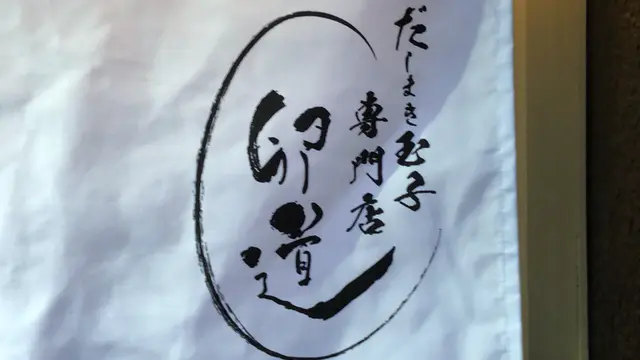 だしまき玉子
専門店
卵道